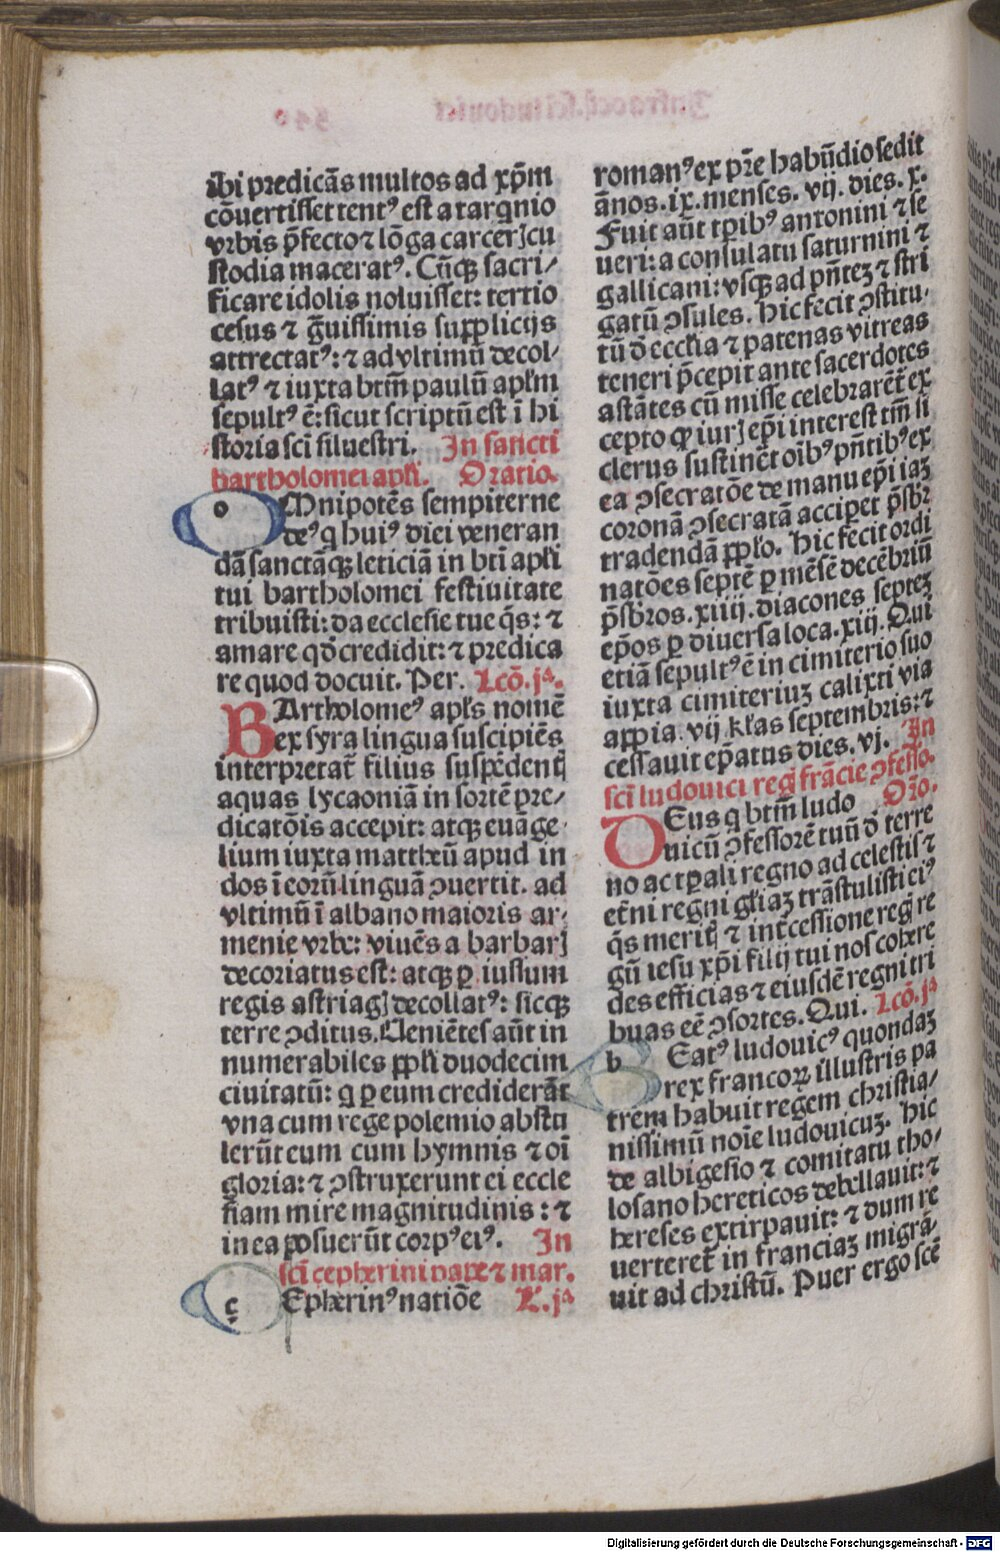 ibi predicãs multos ad xp̃m
cõuertisset tentꝰ est a tarqͥnio
vrbis p̃fecto ⁊ lõga carceꝝ cu
stodia maceratꝰ. Cũqꝫ sacri⸗
ficare idolis noluisset: tertio
cesus ⁊ g̃uissimis supplicijs
attrectatꝰ: ⁊ ad vltimũ decol⸗
latꝰ ⁊ iuxta btm̃ paulũ apl̃m
sepultꝰ ẽ: sicut scriptũ est ĩ hi
storia sc̃i siluestri. In sancti
bartholomei apl̃i. Oratio.
OMnipotẽs sempiterne
deꝰ qͥ huiꝰ diei veneran
dã sanctãqꝫ leticiã in bt̃i apl̃i
tui bartholomei festiuitate
tribuisti: da ecclesie tue q̃s: ⁊
amare qd̃ credidit: ⁊ predica
re quod docuit. Per. Lcõ. jᵃ.
BArtholomeꝰ apl̃s nomẽ
ex syra lingua suscipiẽs
interpretat᷑ filius suspẽdentꝭ
aquas lycaoniã in sortẽ pre⸗
dicatõis accepit: atqꝫ euãge⸗
lium iuxta mattheũ apud in
dos ĩ eorũ linguã ꝯuertit. ad
vltimũ ĩ albano maioris ar⸗
menie vrbe: viuẽs a barbaꝝ
decoriatus est: atqꝫ ꝑ iussum
regis astriagꝭ decollatꝰ: sicqꝫ
terre ꝯditus. Ueniẽtes aũt in
numerabiles ppl̃i duodecim
ciuitatũ: qͥ ꝑ eum crediderãt
vna cum rege polemio abstu
lerũt eum cum hymnis ⁊ oĩ
gloria: ⁊ ꝯstruxerunt ei eccle
siam mire magnitudinis: ⁊
in ea posuerũt corpꝰ eiꝰ. In
sc̃i cepherini pape ⁊ mar.
cEpherinꝰ natiõe L. jᵃ
romanꝰ ex pr̃e habũdio sedit
ãnos. ix. menses. vij. dies. x.
Fuit aũt tp̃ibꝰ antonini ⁊ se
ueri: a consulatu saturnini ⁊
gallicani: vsqꝫ ad pñteꝫ ⁊ stri
gatũ ꝯsules. Hic fecit ꝯstitu⸗
tũ d̃ eccl̃ia ⁊ patenas vitreas
teneri p̃cepit ante sacerdotes
astãtes cũ misse celebrarẽt᷑ ex
cepto ꝙ iurꝭ ep̃i interest tm̃ si
clerus sustinẽt oĩbꝰ pñtibꝰ ex
ea ꝯsecratõe de manu ep̃i iaꝫ
coronã ꝯsecratã accipet p̃sbr̃
tradendã ppl̃o. Hic fecit ordi
natões septẽ ꝑ mẽsẽ decẽbriũ
p̃sbros. xiiij. diacones septeꝫ
ep̃os ꝑ diuersa loca. xiij. Qui
etiã sepultꝰ ẽ in cimiterio suo
iuxta cimiteriuꝫ calixti via
appia. vij kl̃as septembris: ⁊
cessauit ep̃atus dies. vj. In
sc̃i ludouici regꝭ frãcie ꝯfesso.
DEus qͥ btm̃ ludo Orõ.
uicũ ꝯfessorẽ tuũ d̃ terre
no ac tp̃ali regno ad celestis ⁊
et̃ni regni gl̃iaꝫ trãstulisti eiꝰ
q̃s meritꝭ ⁊ int̃cessione regꝭ re
gũ iesu xp̃i filij tui nos cohere
des efficias ⁊ eiusdẽ regni tri
buas eẽ ꝯsortes. Qui. Lcõ. jᵃ
bEatꝰ ludouicꝰ quondaꝫ
rex francoꝝ illustris pa
trem habuit regem christia⸗
nissimũ noĩe ludouicuꝫ. Hic
de albigesio ⁊ comitatu tho⸗
losano hereticos debellauit: ⁊
hereses extirpauit: ⁊ dum re
uerteret᷑ in franciaꝫ migrã⸗
uit ad christũ. Puer ergo scẽ
Digitalisierung gefördert durch die Deutsche Forschungsgemeinschaft - DFG